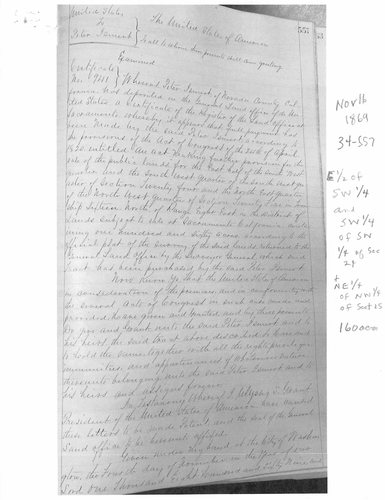 United States
To
Peter Tennant
The United States of America
To all to whom these presents shall come greeting
557
Examined
Certificate
No. 9111
Whereas Peter Tennant of Nevada County Cal
ifornia has deposited in the General Land Office of the Uni
ted States a Certificate of the Register of the Land Office at
Sacramento whereby it appears that full payment has
been made by the said Peter Tennant according to
the provisions of the Act of Congress of the 24th of April
1820 entitled An Act making further provision for the
sale of the public lands for the East half of the South West
quarter and the South West quarter of the South West quar
ter of Section Twenty four and the North East quarter
of the North West quarter of Section Twenty five in Town
ship Sixteen North of Range Eight East in the district of
lands subject to sale at Sacramento California contai
ning one hundred and sixty acres according to the
official plat of the survey of the said lands returned to the
General Land Office by the Surveyor General which said
tract has been purchased by the said Peter Tennant
Now Know Ye That the United States of America
in consideration of the premises and in conformity with
the several acts of Congress in such case made and
provided have given and granted and by these presents
Do give and grant unto the said Peter Tennant and to
his heirs the said tract above described To have and
to hold the same together with all the rights privileges
immunities and appurtenances of whatsoever nature
thereunto belonging unto the said Peter Tennant and to
his heirs and assigns forever
In Testimony Whereof I Ulysses S. Grant
President of the United States of America have caused
these letters to be made Patent and the Seal of the General
Land Office to be hereunto affixed
Given under my hand at the City of Washin
gton the Fourth day of November in the year of our
Lord One Thousand Eight Hundred and Sixty Nine and
Nov 16
1869
34-557
E 1/2 of
SW 1/4
and
SW 1/4
of SW
1/4 of Sec
24
+
NE 1/4
of NW 1/4
of Sect 25
160 acres